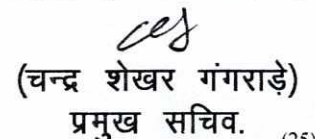 (चन्द्र शेखर गंगराड़े)
प्रमुख सचिव.
(25)